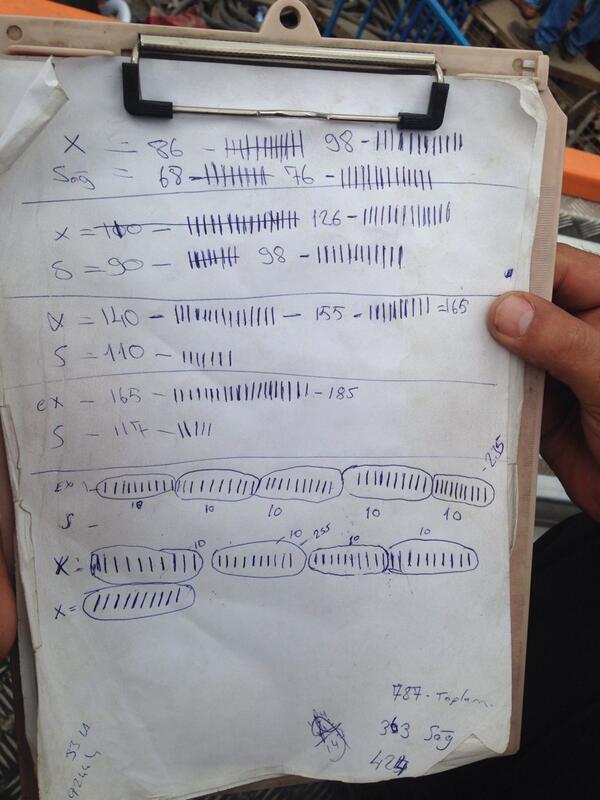 X = 86 - 98 -
Sağ = 68 - 76 -
X = 100 - 126 -
S = 90 - 98 -
X = 140 - - 155 - =165
S = 110 -
ex - 165 - - 185
S - 117 -
EX - 235
10 10 10 10 10
S -
X: 10 10 255 10 10
X=
787 - Toplam.
363 Sağ
424